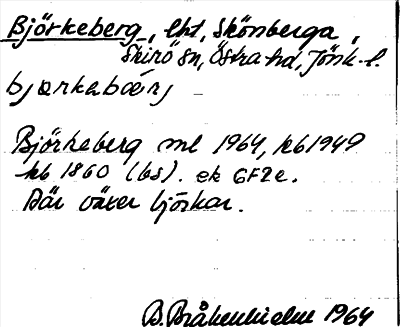 Björkeberg, lht, Skönberga,
Skirö sn, Östra hd, Jönk. l.
bjørkabærj
Björkeberg ml 1964, kb 1949
kb 1860 (bs). ek 6F2e.
Där växer björkar.
B. Bråkenhielm 1964